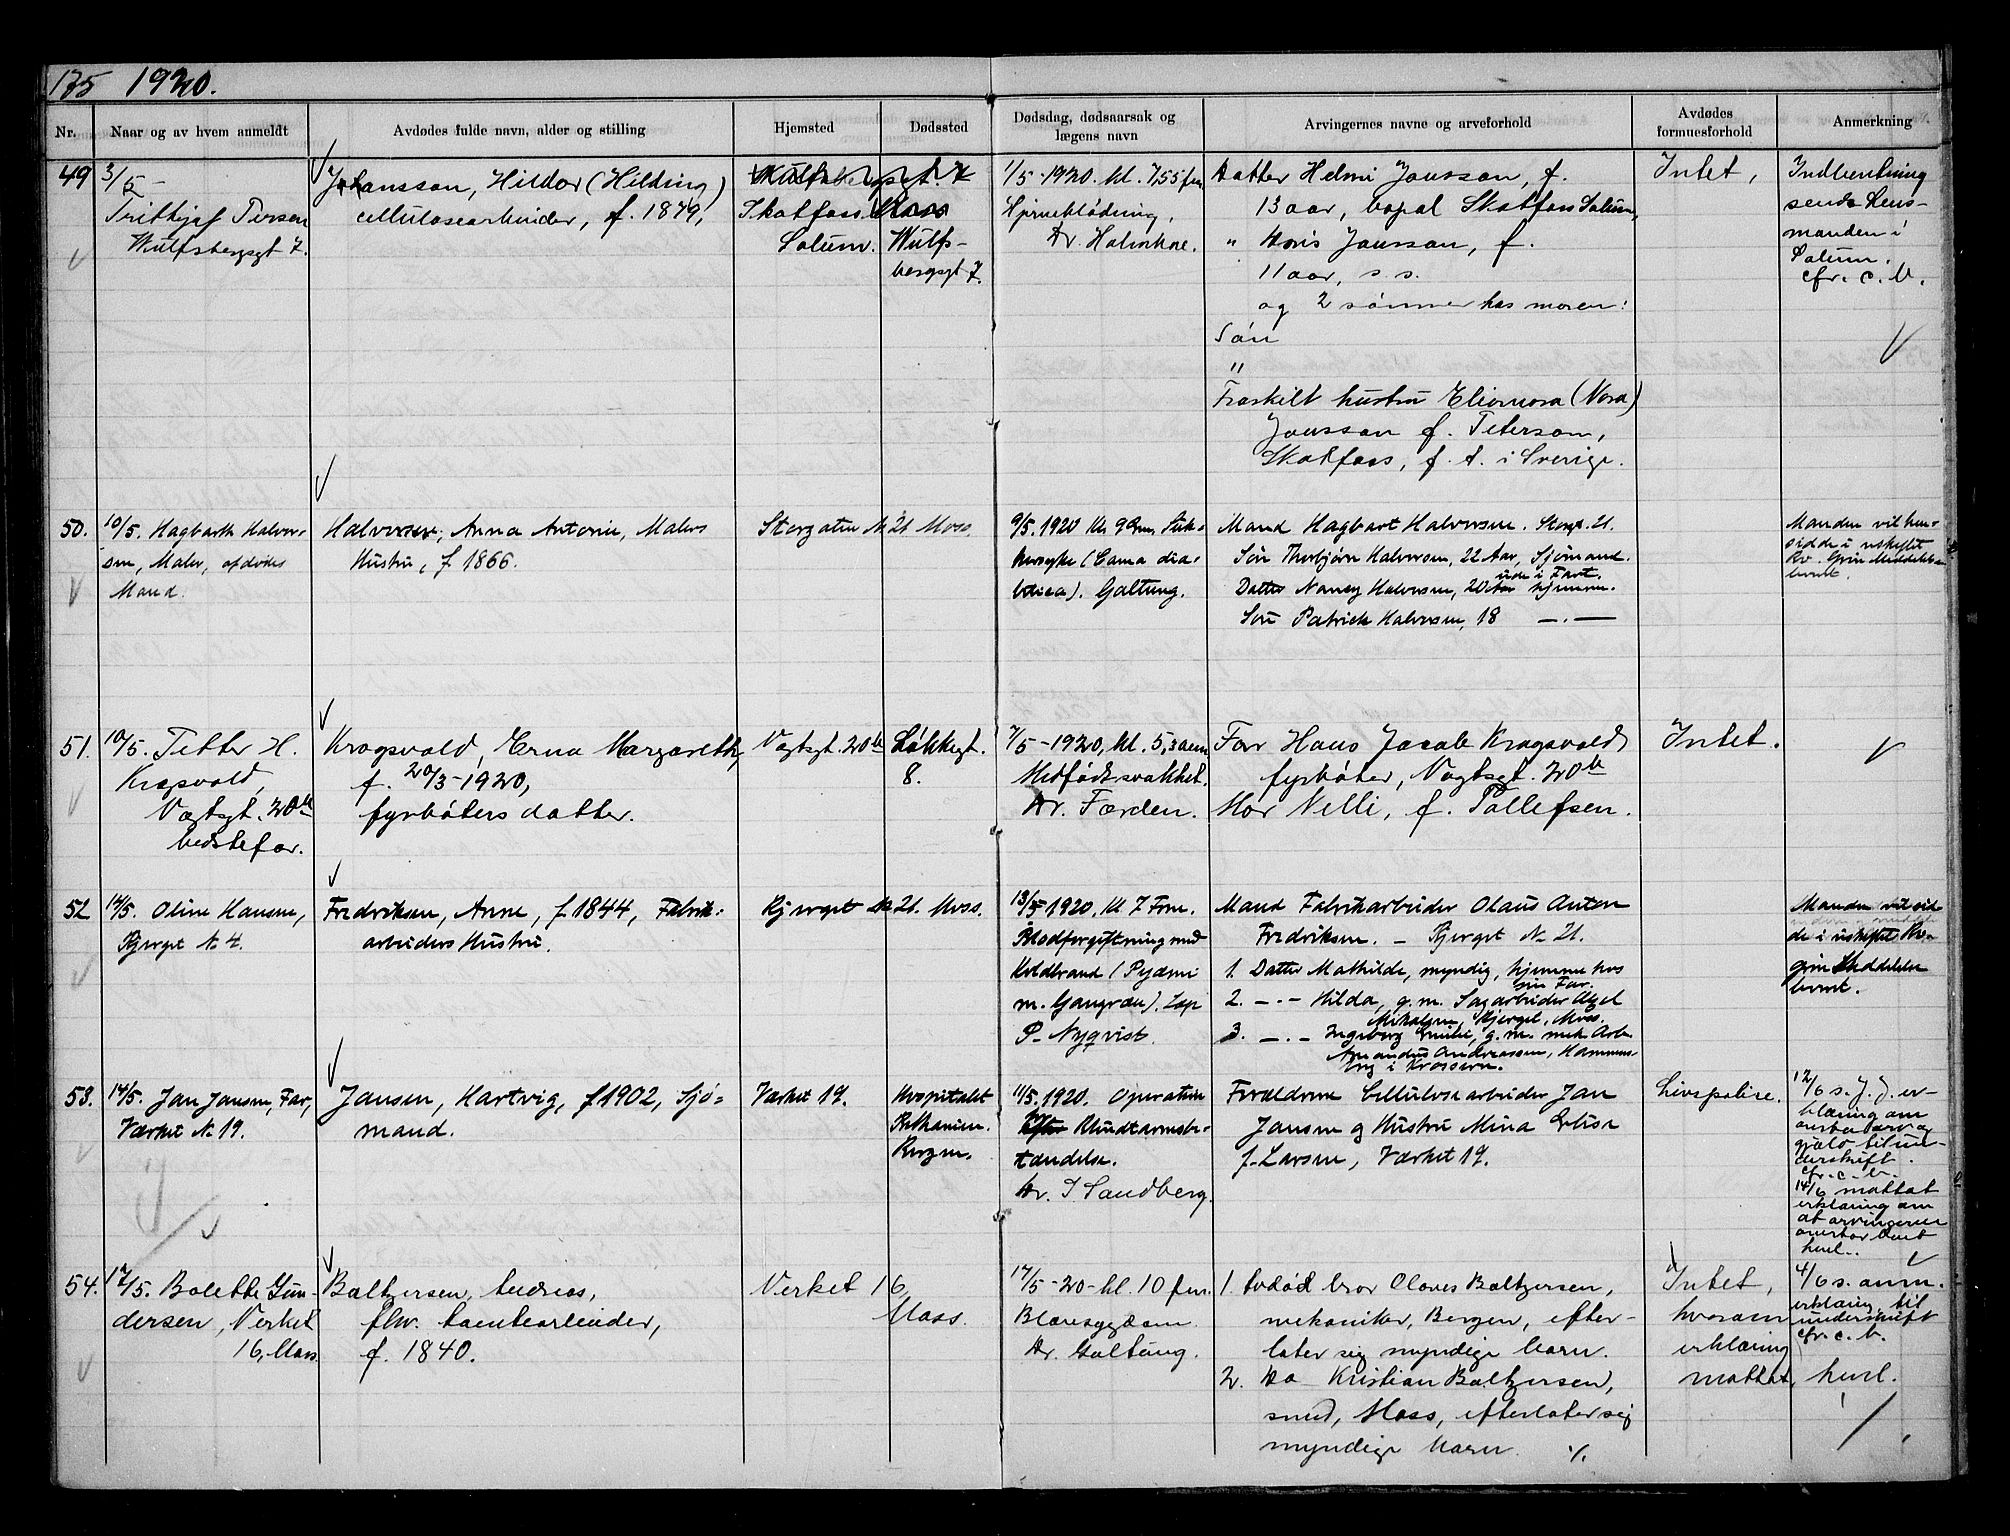 175 1920.
Nr.
Naar og av hvem anmeldt
Avdødes fulde navn, alder og stilling
Hjemsted
Dødssted
Dødsdag, dødsaarsak og
lægens navn
Arvingernes navne og arveforhold
Avdødes
formuesforhold
Anmerkning
49
3/5 -
Wulfsbergsgt 7.
Johansson, Hildor (Hilding)
cellulosearbeider, f. 1879,
Skotfoss
Solum.
Moss
Wulfs-
bergsgt 7.
1/5 - 1920. kl. 7,55 fm
Hjerneblødning,
Dr. Holmboe.
Datter Helmi Jonsson, f.
13 aar, bopæl Skotfoss Solum,
" Doris Jonsson, f.
11 aar, s. s.
og 2 sønner hos moren:
Søn
"
Fraskilt hustru Elionora (Nora)
Jonsson f. Peterson,
Skotfoss, f. t. i Sverige.
Intet,
Indberetning
sendt Lens-
manden i
Solum.
cfr. c. b.
50.
10/5. Hagbarth Halvor-
sen, Maler, afdødes
Mand.
Halvorsen, Anna Antonie, Malers
Hustru, f 1866.
Storgaten № 21 Moss.
9/5. 1920 Kl. 9 Em. Suk-
kersyke (Coma dia-
betica). Galtung.
Mand Hagbart Halvorsen. Storgt. 21.
Søn Thorbjørn Halvorsen, 22 Aar, Sjømand.
ude i Fart.
Datter Nancy Halvorsen, 20 Aar hjemme.
Søn Patrick Halvorsen, 18 — . —
Manden vil hen-
sidde i uskiftet
Bo. Given Meddelelse
51.
10/5. Petter H.
Krogsvold,
Vogtsgt. 20b
bedstefar.
Krogsvold, Erna Margareth,
f. 20/3 - 1920,
fyrbøters datter.
Vogtsgt. 20b
Løkkegt.
8.
7/5 - 1920, kl. 5,30 em
Medfødt svakhet.
Dr. Førden.
Far Hans Jacob Krogsvold
fyrbøter, Vogtsgt. 20b
Mor Nelli, f. Tollefsen.
Intet.
52
14/5. Oline Hansen,
Bjerget № 4.
Fredriksen, Anne, f 1844, Fabrik-
arbeiders Hustru.
Bjerget № 21. Moss.
13/5 1920, Kl 7 Fm.
Blodforgiftning med
Koldbrand (Pyæmi
m. Gangræn).
P. Nyqvist.
Mand Fabrikarbeider Olaus Anton
Fredriksen. – Bjerget № 21.
1. Datter Mathilde, myndig, hjemme hos
sin Far.
2. – . – Hilda, g. m. Sagarbeider Axel
Mikalsen, Bjerget, Moss.
3. – . – Ingeborg Emilie, g. m. mek. Arb.
Amandus Andreassen,
i Krosseren.
Manden vil sid
de i uskiftet Bo.
given Meddelelse
53.
14/5. Jan Jansen, Far,
Værket № 19.
Jansen, Hartvig, f 1902, Sjø-
mand.
Værket 19.
Hospitalet
Bethanien.
Bergen.
11/5. 1920. Operation
for Blindtarmsbe-
tændelse.
Dr. I Sandberg.
Forældrene Cellulosearbeider Jan
Jansen og Hustru Mina Elise
f. Larsen, Værket 19.
Livspolise.
12/6 s. J. J. er-
klæring om
overta arv og
gjæld til un-
derskrift.
cfr. c. b.
14/6 mottat
erklæring om
at arvingerne
overtar boet
henl..
54.
17/5. Bolette Gun-
dersen, Verket
16, Moss
Baltzersen, Andreas,
fhv. tomtearbeider,
f. 1840.
Verket 16,
Moss.
17/5 - 20 - kl. 10 fm.
Blæresygdom.
Dr. Galtung.
1. Avdød bror Olaves Baltzersen,
mekaniker, Bergen, efter-
later sig myndige barn.
2. Do Kristian Baltzersen,
smed, Moss, efterlater sig
myndige barn. ./.
Intet,
hvorom
erklæring
mottat,
4/6 s. anm.
erklæring til
underskrift
cfr. c. b.
henl.